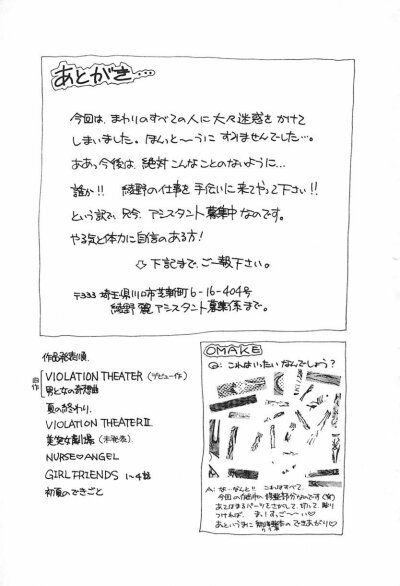 あとがき…
今回は、まわりのすべての人に大々迷惑をかけて
しまいました。ほんと〜うにすみませんでした…。
ああっ今後は、絶対こんなことのないように…
誰か!! 綾野の仕事を手伝いに来てやって下さい!!
という訳で、只今、アシスタント募集中なのです。
やる気と体力に自信のある方!
⇩下記まで、ご一報下さい。
〒333 埼玉県川口市芝新町6-16-404号
綾野 麗 アシスタント募集係まで。
作品発表順
旧作
VIOLATION THEATER (デビュー作)
男と女の奇想曲
夏の終わり。
VIOLATION THEATER II
美美女劇場 (未発表)
NURSE♡ANGEL
GIRL FRIENDS 1〜4話
初夏のできごと
OMAKE
Q:これはいったいなんでしょう?
A:な…なんと!! これはすべて、
今回の作品中の修整部分なのです(笑)
あてはまるパーツをさがして、切って、貼り
つければ、ま!すっご〜い♡
あというまに無修整本のできあがり♡